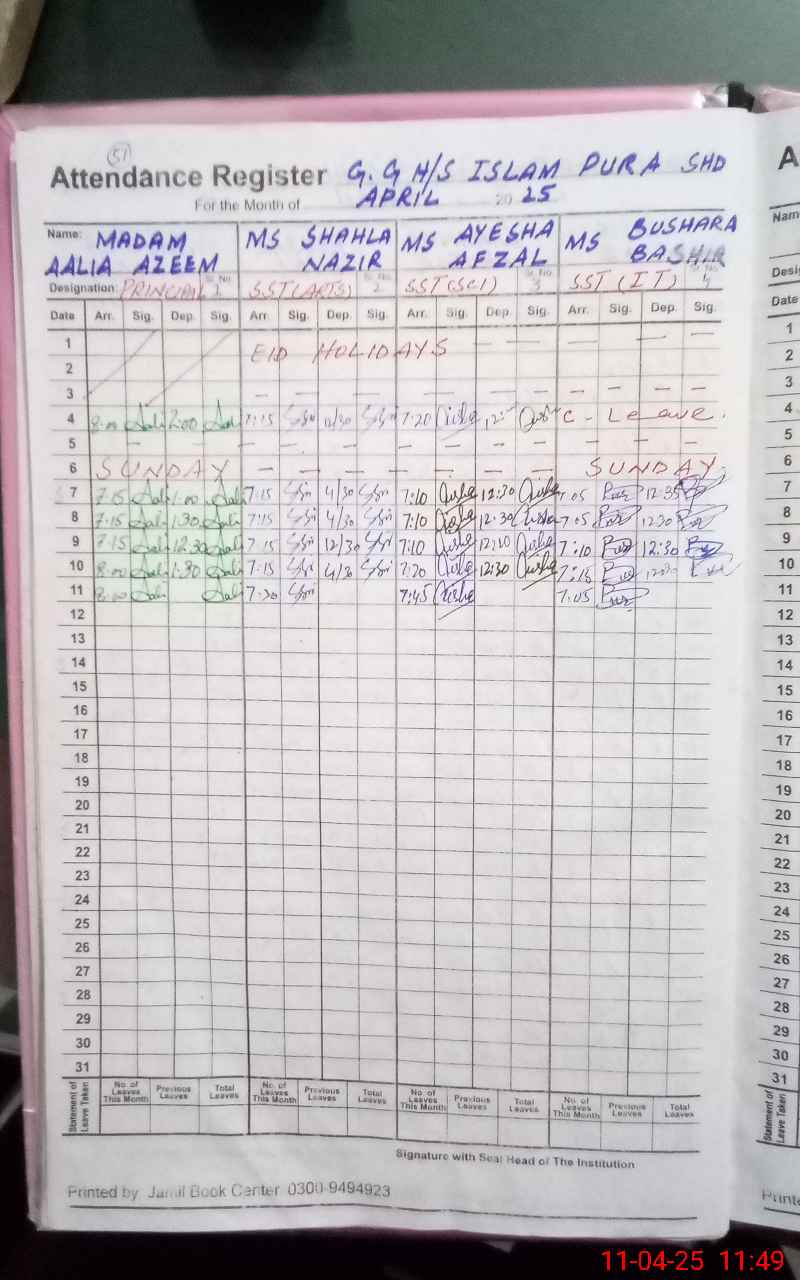 51
Attendance Register G.G H/S ISLAM PURA SHD
For the Month of APRIL 2025
Name: MADAM AALIA AZEEM MS SHAHLA NAZIR MS AYESHA AFZAL MS BUSHARA BASHIR
Designation: PRINCIPAL Sr. No. 1 SST(ARTS) Sr. No. 2 SST(SCI) Sr. No. 3 SST (IT) Sr. No. 4
Date Arr. Sig. Dep. Sig. Arr. Sig. Dep. Sig. Arr. Sig. Dep. Sig. Arr. Sig. Dep. Sig.
1 EID HOLIDAYS — — — — —
2
3 — — — — — — — —
4 8:00 Aali 2:00 Aali 7:15 12/30 7:20 Aisha C - Leave.
5 — — — — — — — —
6 SUNDAY — — — — — — SUNDAY
7 7:15 Aali 1:00 Aali 7:15 4/30 7:10 Aisha 12:30 Aisha 7:05 12:35
8 7:15 Aali 1:30 Aali 7:15 4/30 7:10 Aisha 12:30 Aisha 7:05 12:30
9 7:15 Aali 12:30 Aali 7:15 12/30 7:10 Aisha Aisha 7:10 12:30
10 8:00 Aali 1:30 Aali 7:15 4/30 7:20 Aisha 12:30 Aisha 7:15
11 8:00 Aali Aali 7:30 7:45 Aisha 7:05
12
13
14
15
16
17
18
19
20
21
22
23
24
25
26
27
28
29
30
31
Statement of Leave Taken No. of Leaves This Month Previous Leaves Total Leaves No. of Leaves This Month Previous Leaves Total Leaves No. of Leaves This Month Previous Leaves Total Leaves No. of Leaves This Month Previous Leaves Total Leaves
Signature with Seal Head of The Institution
Printed by Jamil Book Center 0300-9494923
A
Nam
Desi
Date
1
2
3
4
5
6
7
8
9
10
11
12
13
14
15
16
17
18
19
20
21
22
23
24
25
26
27
28
29
30
31
Statement of Leave Taken
Printe
11-04-25 11:49